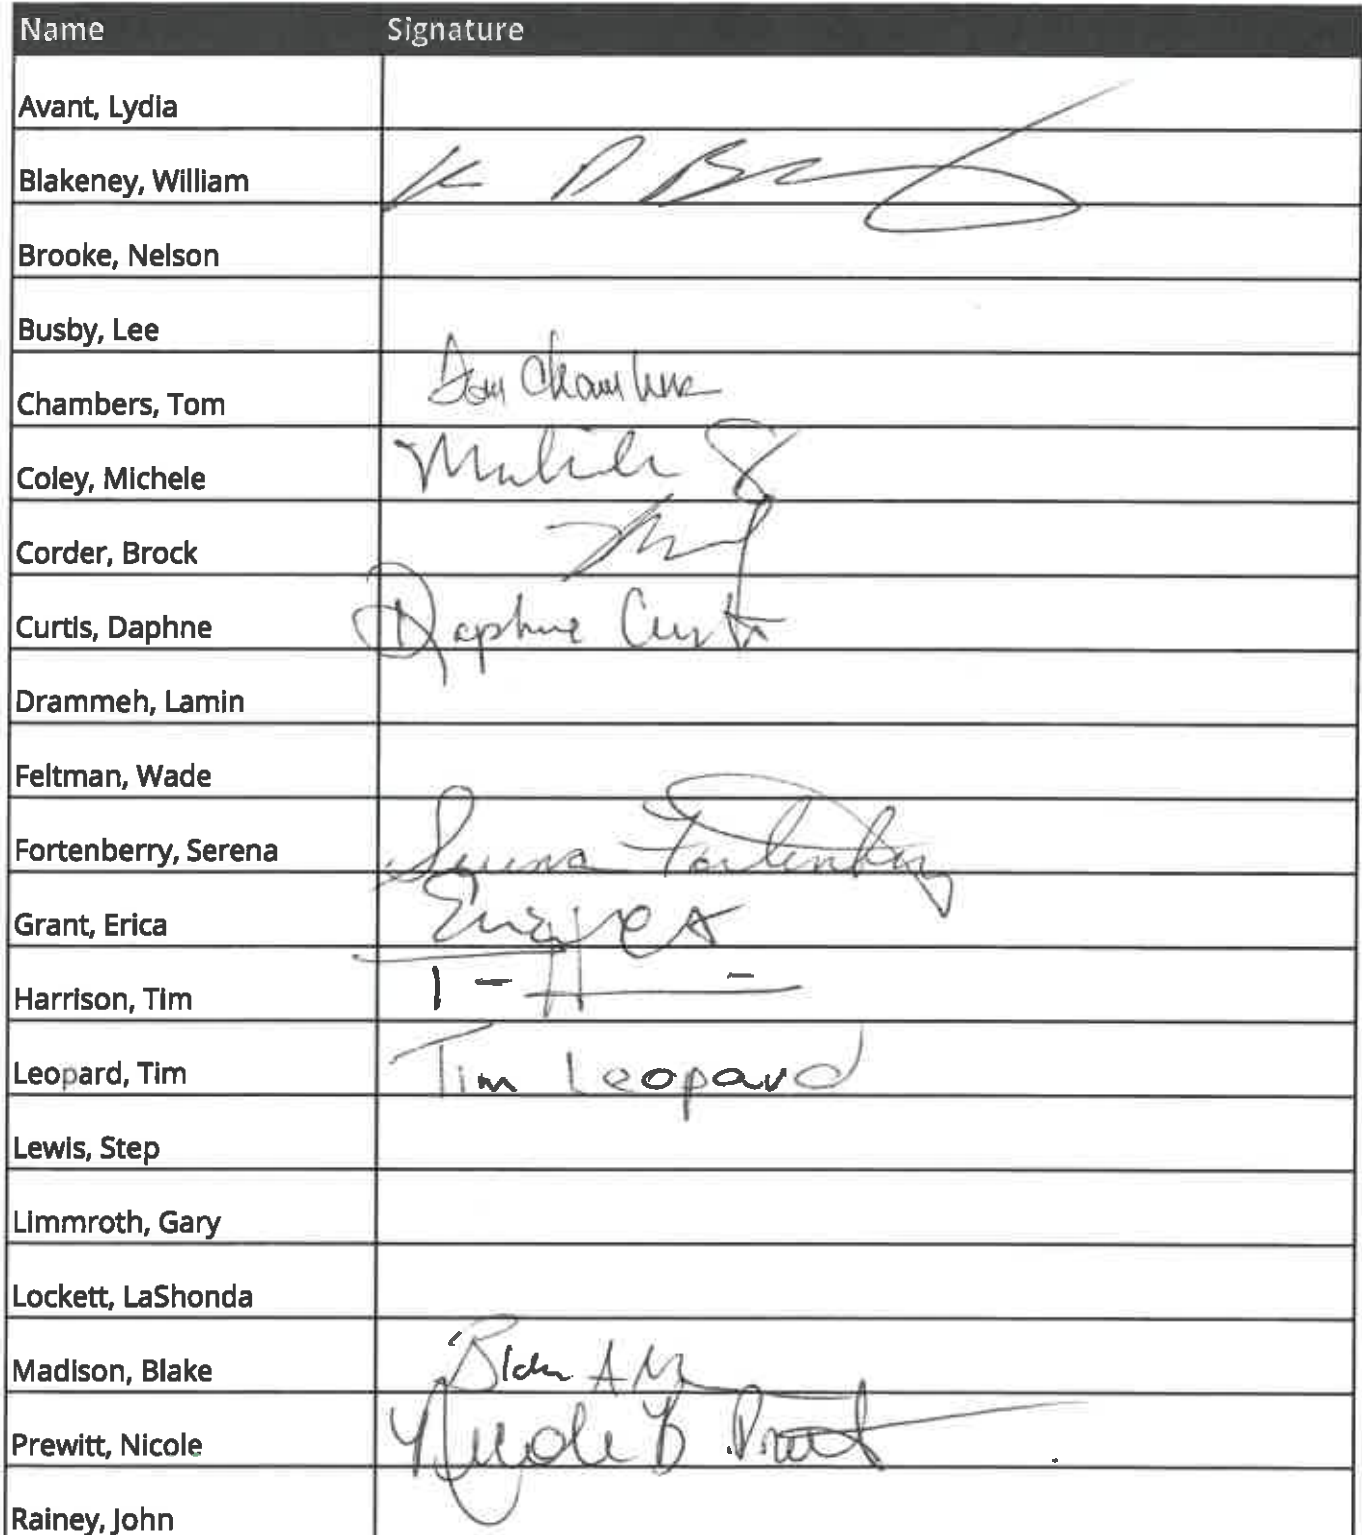 Name Signature
Avant, Lydia
Blakeney, William
Brooke, Nelson
Busby, Lee
Chambers, Tom Tom Chambers
Coley, Michele Michele
Corder, Brock
Curtis, Daphne Daphne Curtis
Drammeh, Lamin
Feltman, Wade
Fortenberry, Serena Serena Fortenberry
Grant, Erica
Harrison, Tim T H
Leopard, Tim Tim Leopard
Lewis, Step
Limmroth, Gary
Lockett, LaShonda
Madison, Blake
Prewitt, Nicole Nicole B Prewitt
Rainey, John